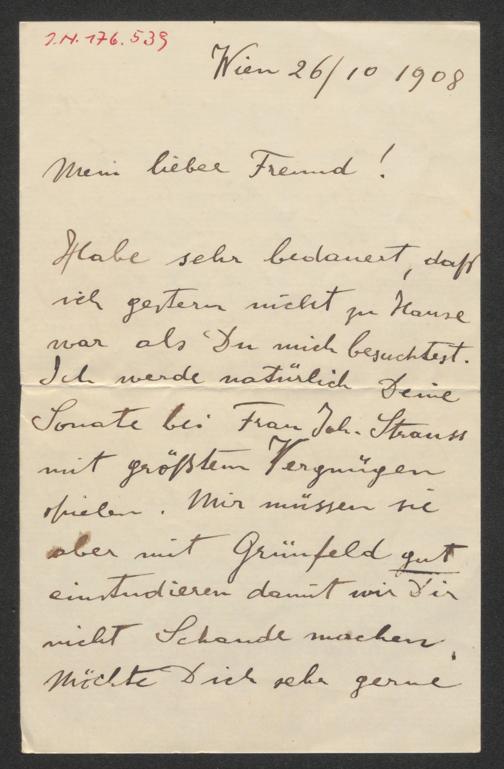 J.N. 176.539
Wien 26/10 1908
Mein lieber Freund!
Habe sehr bedauert, daß
ich gestern nicht zu Hause
war als Du mich besuchtest.
Ich werde natürlich Deine
Sonate bei Frau Joh. Strauss
mit größtem Vergnügen
spielen. Wir müssen sie
aber mit Grünfeld gut
einstudieren damit wir Dir
nicht Schande machen.
Möchte Dich sehr gerne